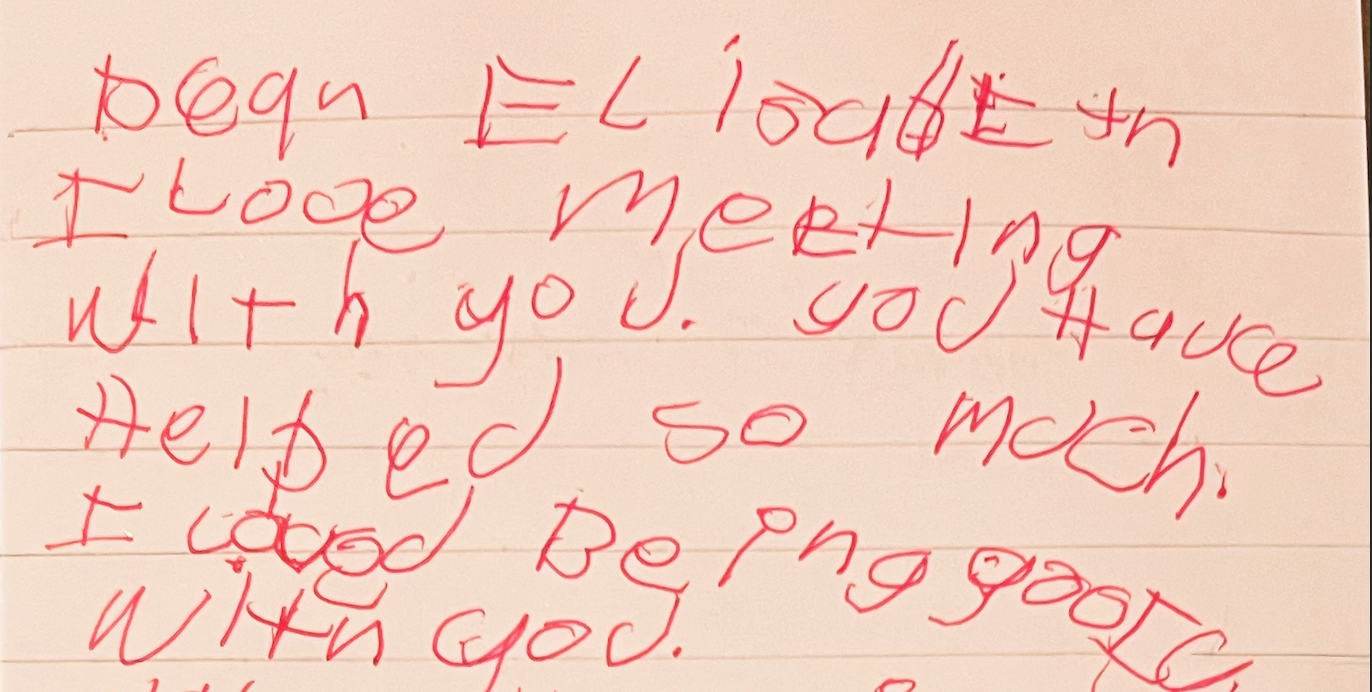 Dear Elizabeth
I Love meeting
with you. you Have
Helped so much.
I loved Being
with you.